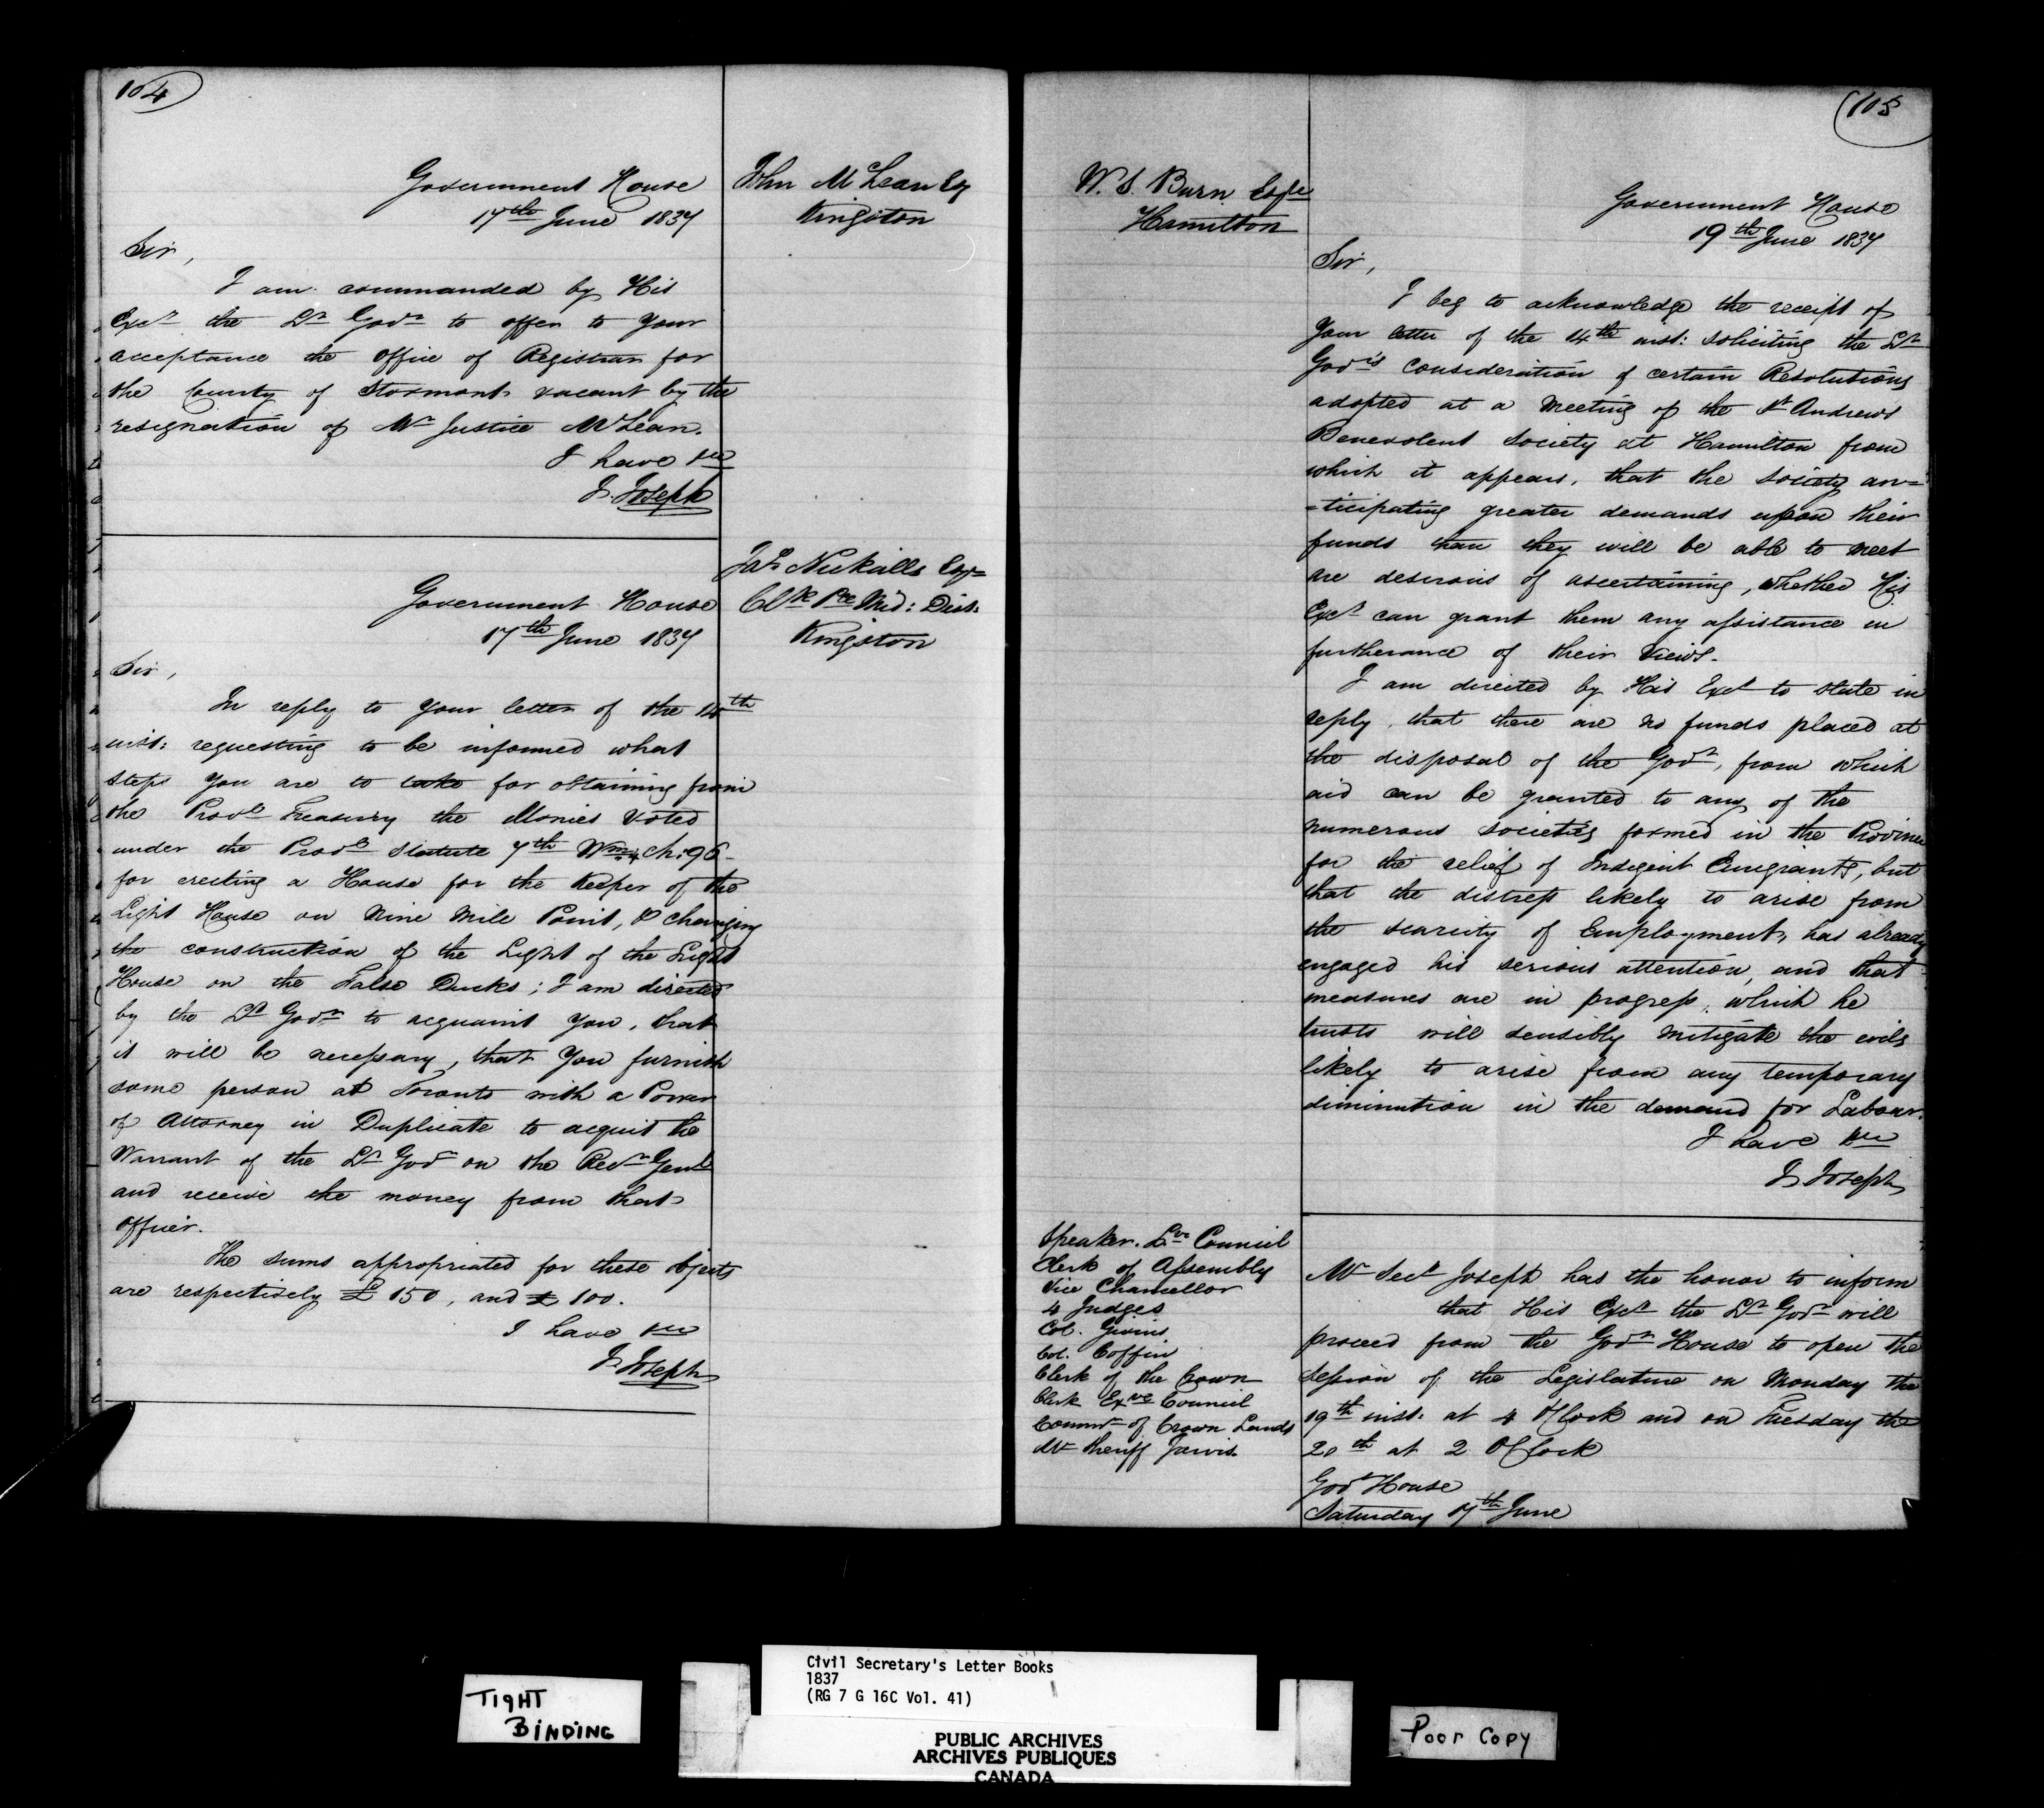 104
John McLean Esq
Kingston
Government House
17th June 1837
Sir,
I am commanded by His
Excy the Lt Govr to offer to your
acceptance the office of Registrar for
the County of Stormont vacant by the
resignation of Mr Justice McLean.
I have &c
J. Joseph
Jas Nickalls Esqr
Clk Pce Mid: Dist.
Kingston
Government House
17th June 1837
Sir,
In reply to your letter of the 14th
inst: requesting to be informed what
steps you are to take for obtaining from
the Provl Treasury the Monies voted
under the Provl Statute 7th Wm 4 Ch: 96
for erecting a House for the Keeper of the
Light House on Nine Mile Point, & changing
the construction of the Light of the Light
House on the False Ducks; I am directed
by the Lt Govr to acquaint you, that
it will be necessary, that you furnish
some person at Toronto with a Power
of Attorney in Duplicate to acquit the
Warrant of the Lt Govr on the Recr Genl
and receive the money from that
officer.
The sums appropriated for these objects
are respectively £150, and £100.
I have &c
J. Joseph
105
W. S. Burn Esqre
Hamilton
Government House
19th June 1837
Sir,
I beg to acknowledge the receipt of
your letter of the 14th inst: soliciting the Lt
Govr's consideration of certain Resolutions
adopted at a meeting of the St Andrews
Benevolent Society at Hamilton from
which it appears, that the Society an=
=ticipating greater demands upon their
funds than they will be able to meet
are desirous of ascertaining, whether His
Excy can grant them any assistance in
furtherance of their views.
I am directed by His Excy to state in
reply, that there are no funds placed at
the disposal of the Govt, from which
aid can be granted to any of the
numerous societies formed in the Province
for the relief of Indigent Emigrants, but
that the distress likely to arise from
the scarcity of Employment, has already
engaged his serious attention, and that
measures are in progress, which he
trusts will sensibly mitigate the evils
likely to arise from any temporary
diminution in the demand for Labour.
I have &c
J. Joseph
Speaker. Lve Council
Clerk of Assembly
Vice Chancellor
4 Judges
Col. Givins
Col. Coffin
Clerk of the Crown
Clerk Exve Council
Commr of Crown Lands
Mr Sheriff Jarvis.
Mr Secy Joseph has the honor to inform
that His Excy the Lt Govr will
proceed from the Govt House to open the
Session of the Legislature on Monday the
19th inst. at 4 O'Clock and on Tuesday the
20th at 2 O'Clock
Govt House
Saturday 17th June
TIGHT
BINDING
Civil Secretary's Letter Books
1837
(RG 7 G 16C Vol. 41)
PUBLIC ARCHIVES
ARCHIVES PUBLIQUES
CANADA
Poor Copy